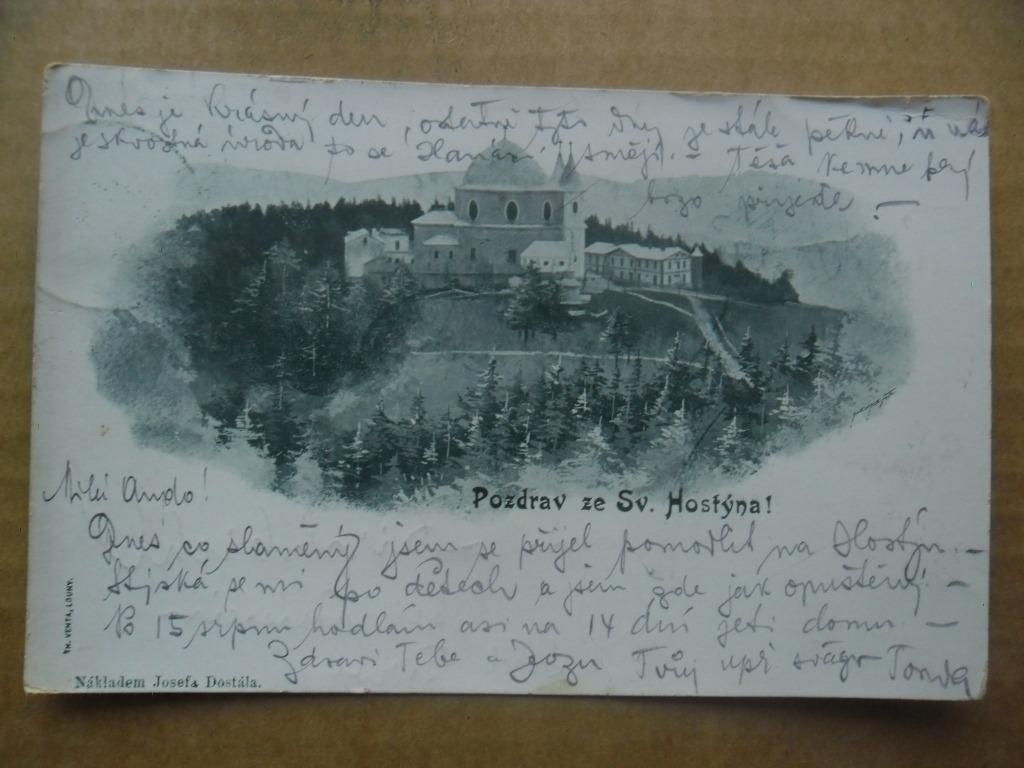 Dnes je krásný den, ostatně tyto dny je stále pěkně,
je skvostná úroda to se Hanáci smějí. – Těšá ke mne prý
brzo přijede –
Milá Ando!
Pozdrav ze Sv. Hostýna!
Dnes co slaměný jsem se přijel pomodlit na Hostýn. –
Stýská se mi po dětech a jsem zde jak opuštěný –
Po 15 srpnu hodlám asi na 14 dní jeti domu –
Zdraví Tebe a Jozu Tvůj upř švágr Tonda
FR. VENTA, LOUNY.
Nákladem Josefa Dostála.